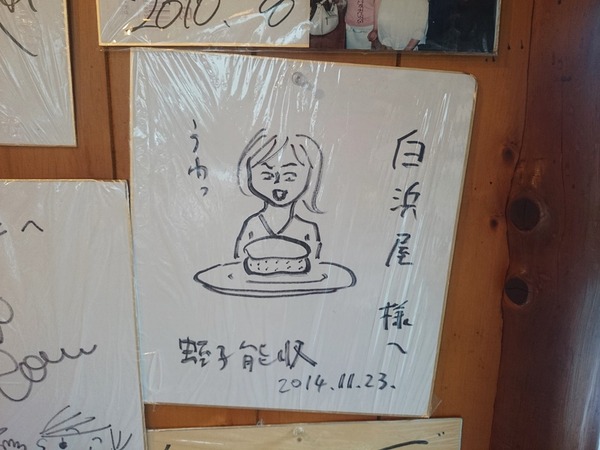 2010.
白浜屋 様へ
うわっ
蛭子能収
2014.11.23.